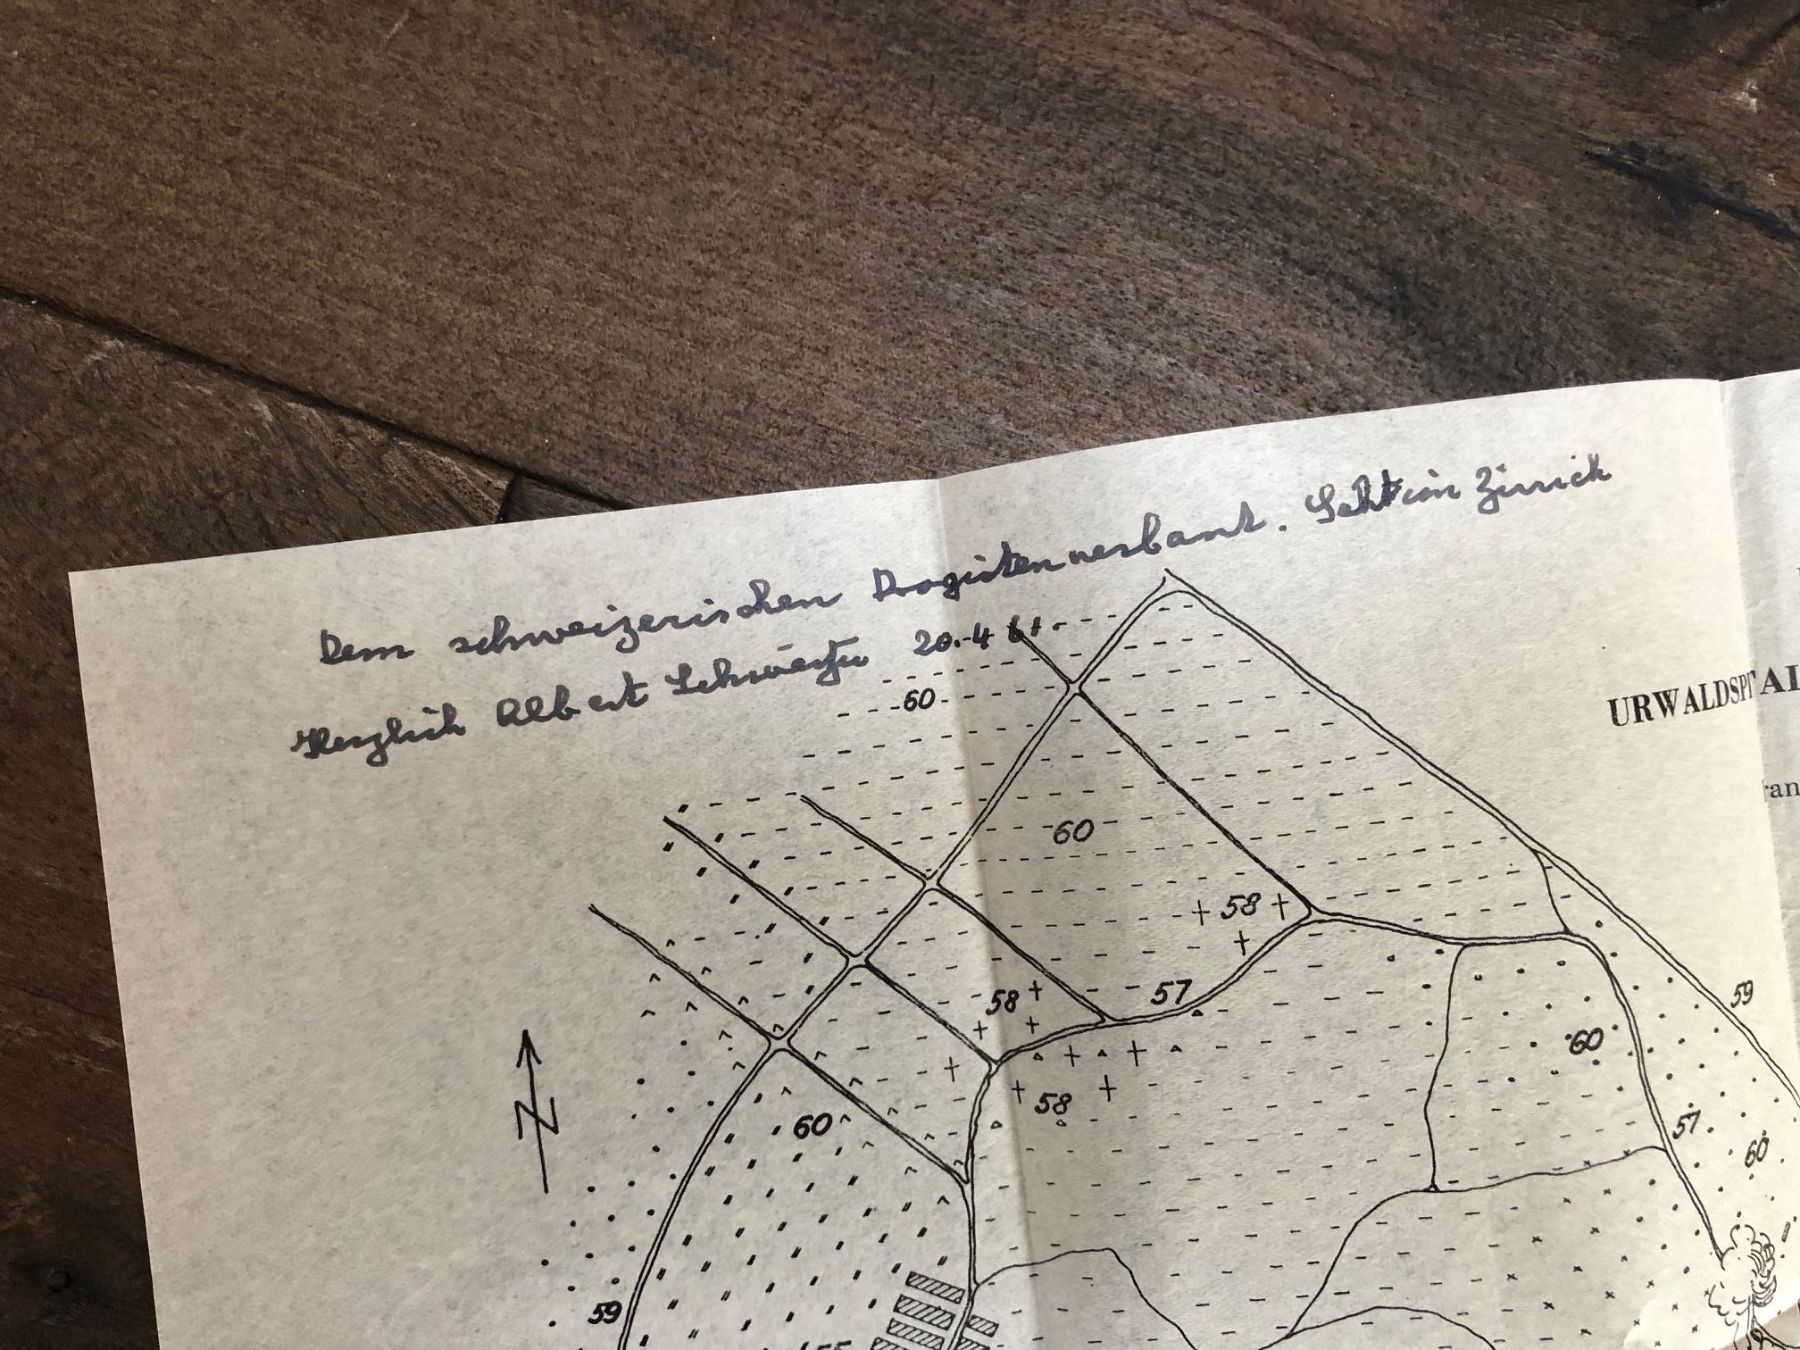 Dem schweizerischen Drogistenverband. Sektion Zürich
Herzlich Albert Schweitzer 20.4 61.
60
60
58
58
57
58
60
60
57
60
59
59
55
URWALDSPITAL
ran
N